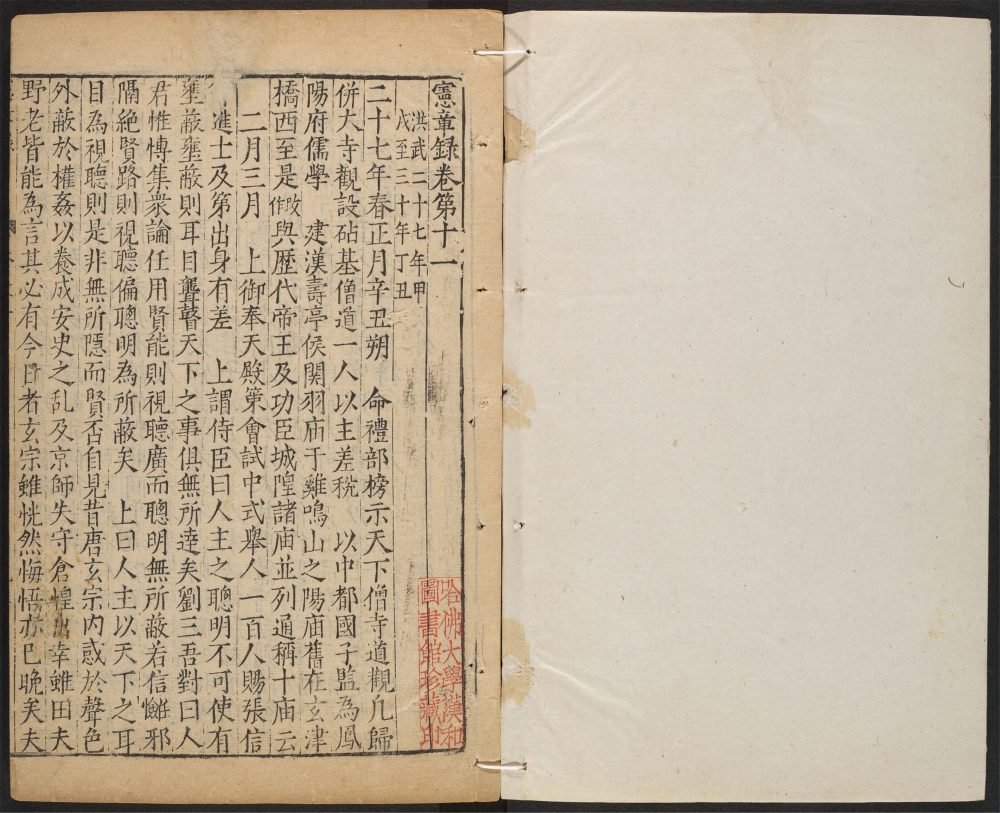 憲章録卷第十一
洪武二十七年甲
戌至三十年丁丑
二十七年春正月辛丑朔　命禮部榜示天下僧寺道觀凡歸
併大寺觀設砧基僧道一人以主差税　以中都國子監為鳳
陽府儒學　建漢壽亭侯関羽庙于雞鳴山之陽庙舊在玄津
橋西至是改作與歷代帝王及功臣城隍諸庙並列通稱十庙云
二月三月　上御奉天殿策會試中式舉人一百人賜張信
進士及第出身有差　上謂侍臣曰人主之聰明不可使有
壅蔽壅蔽則耳目聾瞽天下之事俱無所達矣劉三吾對曰人
君惟慱集衆論任用賢能則視聽廣而聰明無所蔽若信懈邪
隔絶賢路則視聽偏聰明為所蔽矣　上曰人主以天下之耳
目為視聽則是非無所隱而賢否自見昔唐玄宗内惑於聲色
外蔽於權姦以養成安史之乱及京師失守倉惶出幸雖田夫
野老皆能為言其必有今日者玄宗雖恍然悔悟亦已晚矣夫
哈佛大學漢和
圖書館珍藏印